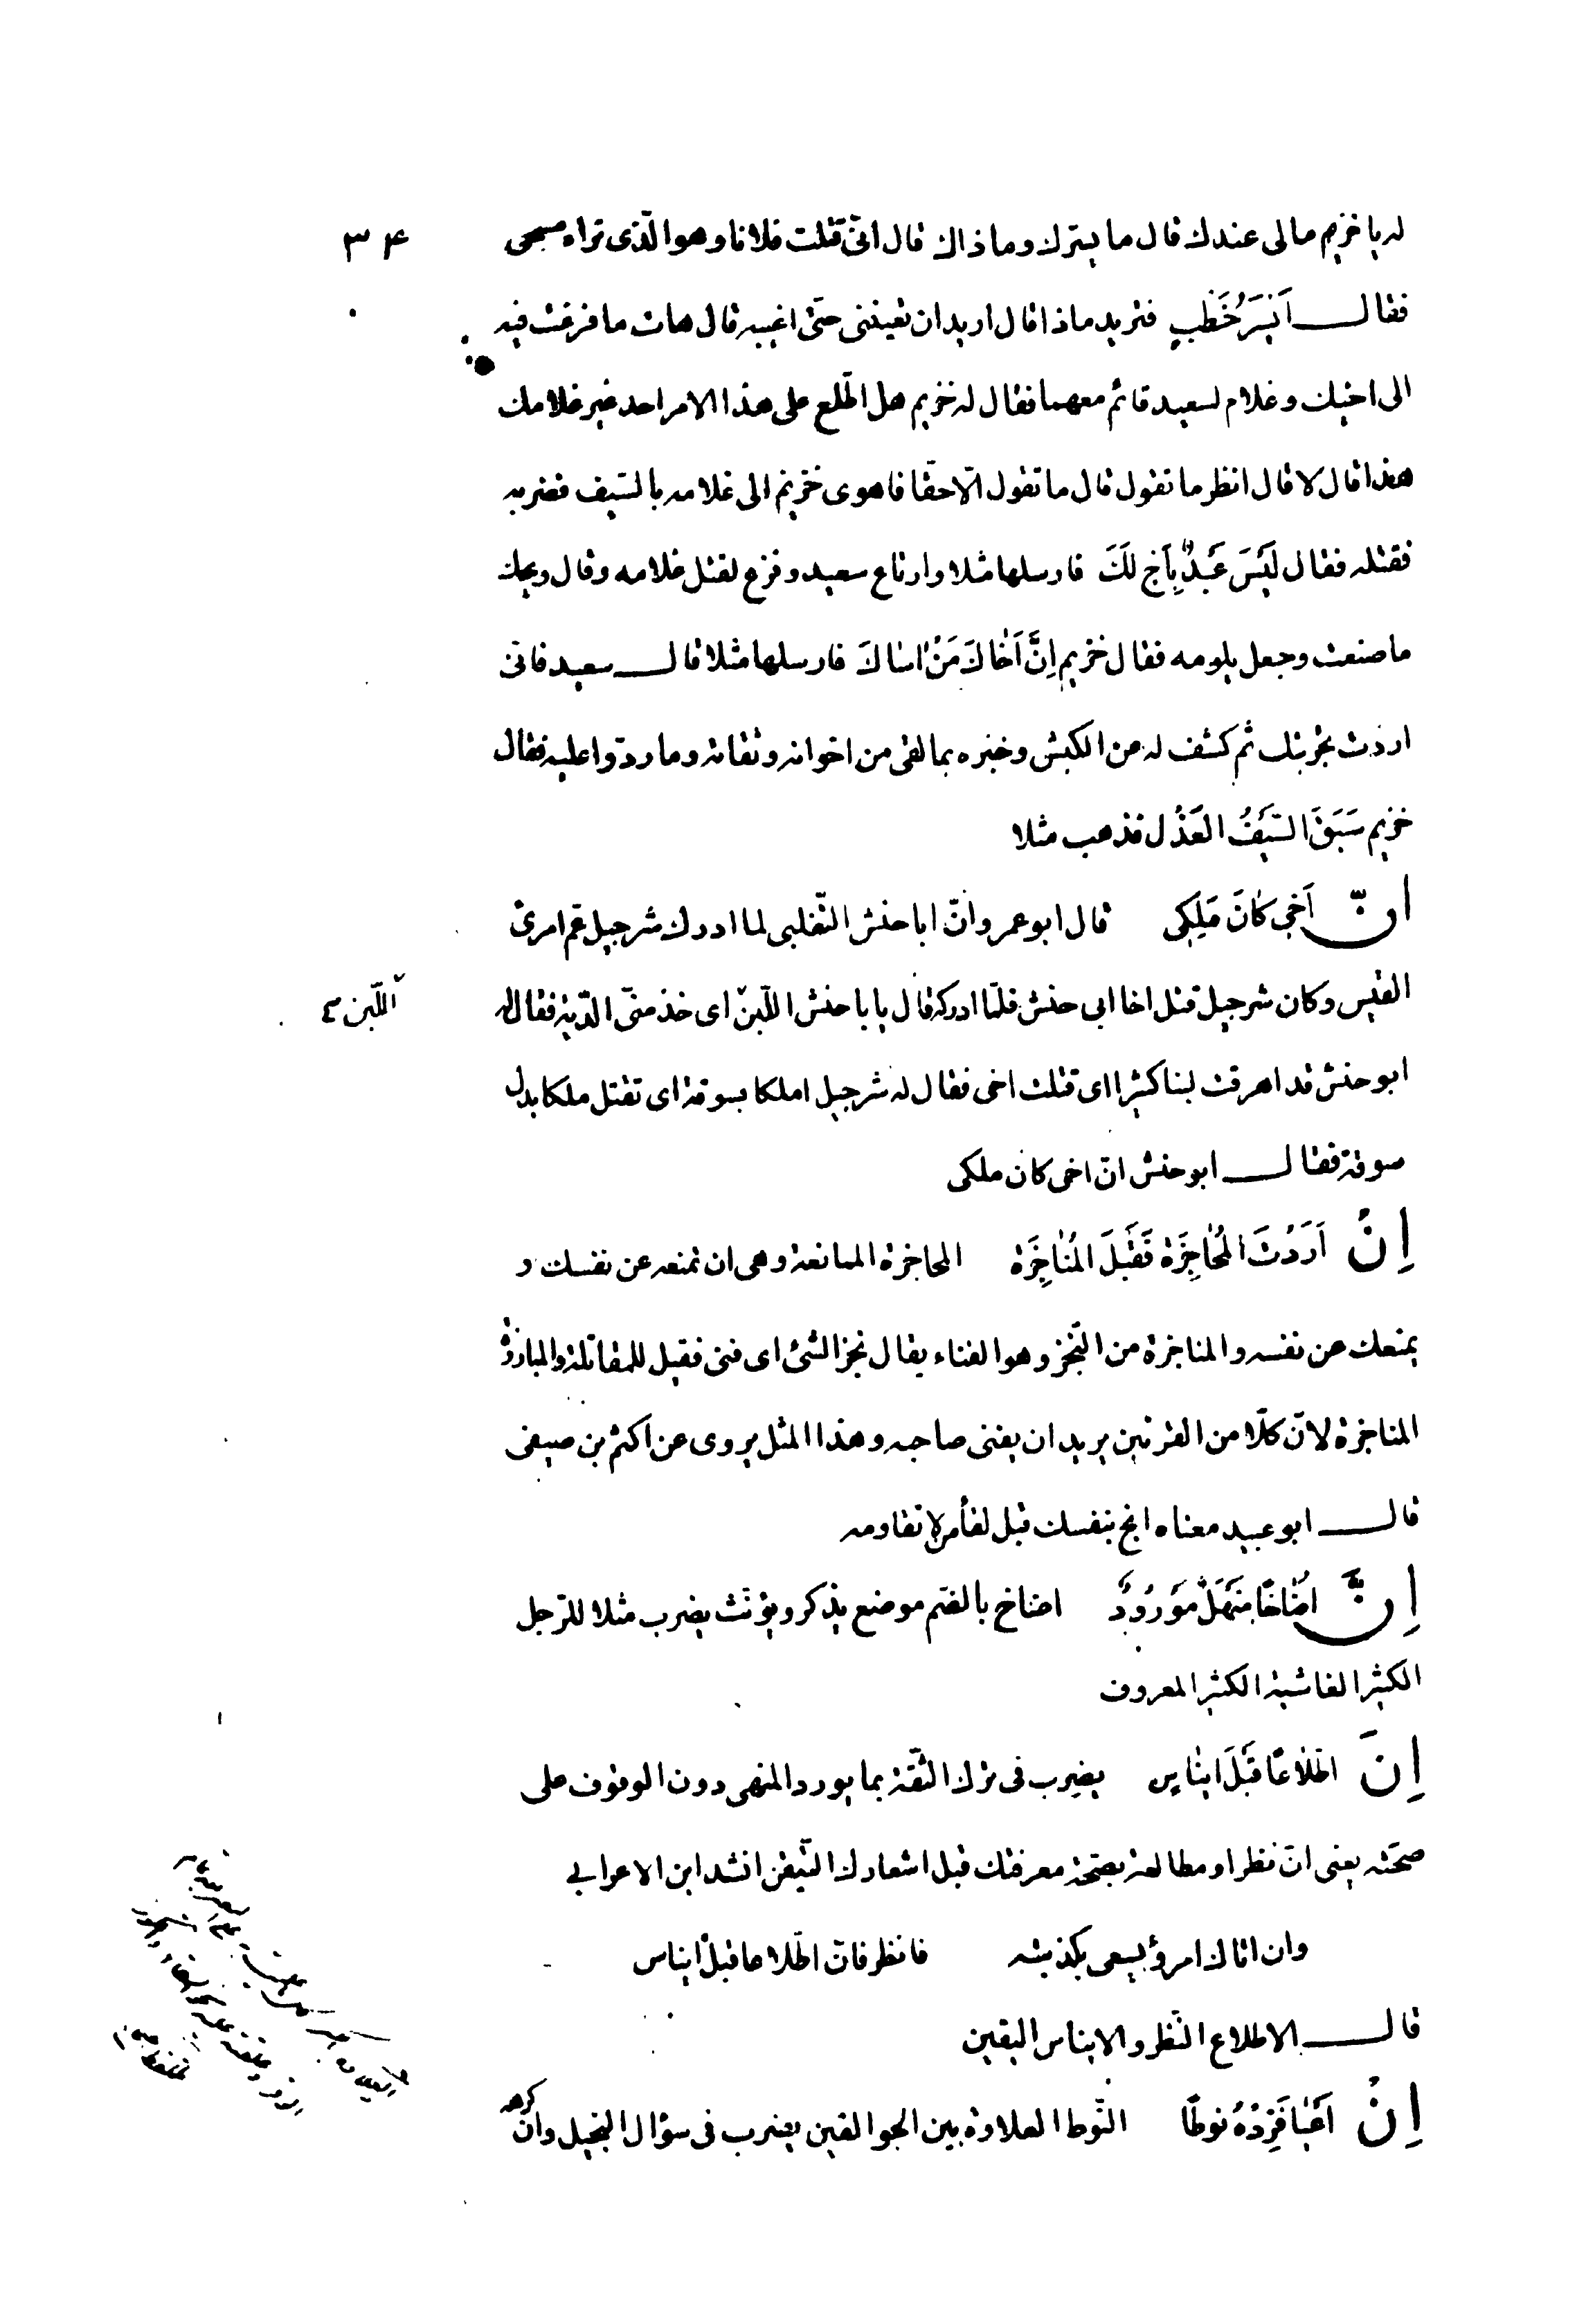 له يا خزيم مالى عندك قال ما يسترك وما ذاك قال انّى قتلت فلانا وهو الّذى تراه مسجى
۳۴
فقال اَيْسَرُ خَطْبٍ فتريد ماذا قال اريد ان تعيننى حتّى اغيبه قال هات ما فزعت فيه
الى اخيك وغلام لسعيد قائم معهما فقال له خزيم هل اطّلع على هذا الامر احد غير غلامك
هذا قال لا قال انظر ما تقول قال ما تقول الّا حقّا فاهوى خزيم الى غلامه بالسّيف فضربه
فقتله فقال لَيْسَ عَبْدٌ بِاَخٍ لَكَ فارسلها مثلا وارتاع سعيد وفزع لقتل غلامه وقال ويحك
ما صنعت وجعل يلومه فقال خزيم اِنَّ اَخَاكَ مَنْ اسٰاكَ فارسلها مثلا قال سعيد فانّى
اردت تجربتك ثم كشف له عن الكبش وخبره بما لقى من اخوانه وثقاته وما ردّوا عليه فقال
خزيم سَبَقَ السَّيْفُ الْعَذْل فذهب مثلا
انّ اَخِى كَانَ مَلِكِى قال ابو عمرو انّ ابا حنش التّغلبى لما ادرك شرجيل عم امرئ
القيس وكان شرجيل قتل اخا ابى حنش فلمّا ادركه قال يا با حنش اللّبن اى خذ منّى الدّية فقال له
اللّبن
ابو حنش قد اهرقت لبنا كثيرا اى قتلت اخى فقال له شرجيل املكا بسوقة اى تقتل ملكا بدل
سوقة فقال ابو حنش انّ اخى كان ملكى
اِنْ اَرَدْتَ الْمُحٰاجِزَة فَقَبْلَ الْمُنٰاجِزَة المحاجزة الممانعة وهى ان تمنعه عن نفسك و
يمنعك عن نفسه والمناجزة من النّجز وهو الفناء يقال نجز الشّئ اى فنى فقيل للمقاتلة والمبارزة
المناجزة لانّ كلّا من القرنين يريد ان يفنى صاحبه وهذا المثل يروى عن اكثم بن صيفى
قال ابو عبيد معناه انج بنفسك قبل لقأ من لا تقاومه
اِنَّ اُضٰاخًا مَنْهَلٌ مَوْرُودٌ اضاخ بالضّم موضع يذكر ويؤنّث يضرب مثلا للرّجل
الكثير الغاشية الكثير المعروف
اِنَّ اطّلٰاعًا قَبْلَ اينٰاسٍ يضرب فى ترك الثّقة بما يورد المنهى دون الوقوف على
صحّته يعنى انّ نظرا ومطالعة بصحّة معرفتك قبل اشعارك التّيقن انشد ابن الاعرابى
وان اتاك امرؤ يسعى بكذبته فانظر فانّ اطّلاعا قبل ايناس
قال الاطلاع النّظر والايناس اليقين
اِنْ اَعْيٰا فَزِدْهُ نوطًا النّوط العلاوة بين الجوالقين يضرب فى سؤال البخيل وان كرهه